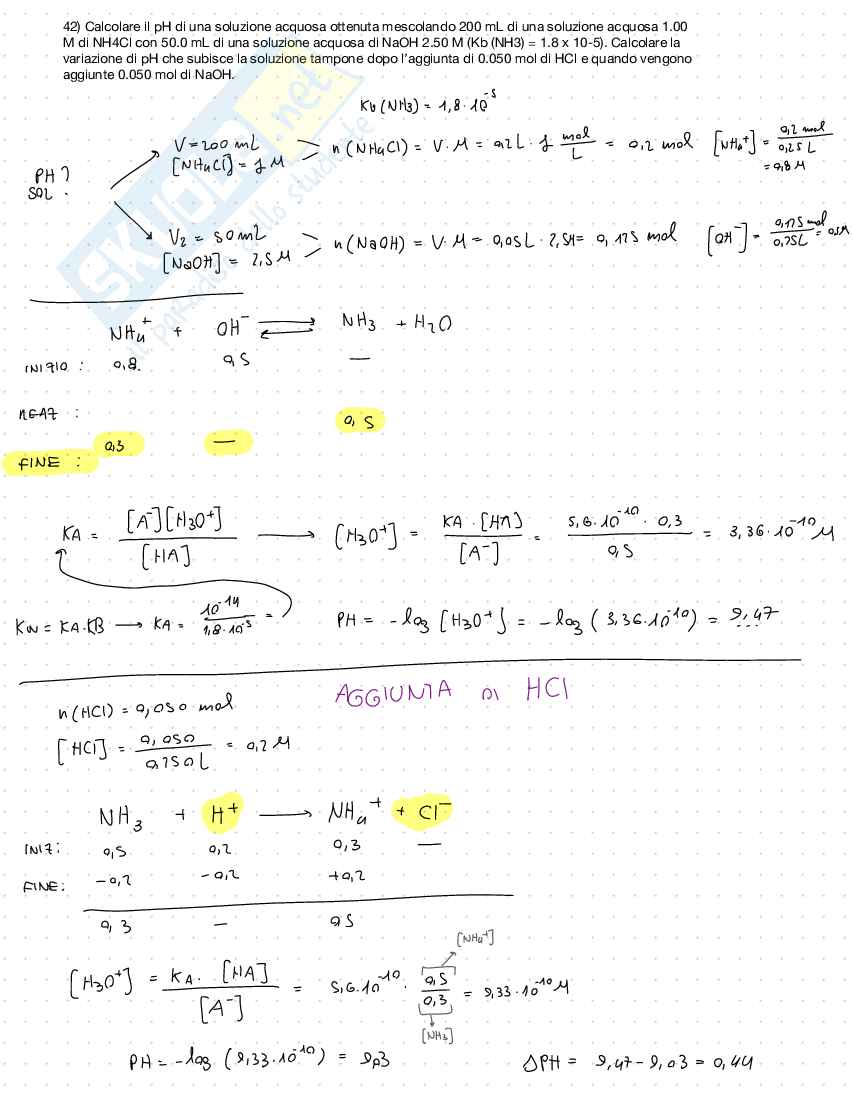 42) Calcolare il pH di una soluzione acquosa ottenuta mescolando 200 mL di una soluzione acquosa 1.00
M di NH4Cl con 50.0 mL di una soluzione acquosa di NaOH 2.50 M (Kb (NH3) = 1.8 x 10-5). Calcolare la
variazione di pH che subisce la soluzione tampone dopo l'aggiunta di 0.050 mol di HCl e quando vengono
aggiunte 0.050 mol di NaOH.
Kb (NH3) = 1,8 · 10^-5
PH ?
SOL :
V = 200 mL
[NH4Cl] = 1 M
n (NH4Cl) = V · M = 0,2 L · 1 mol/L = 0,2 mol [NH4+] = 0,2 mol / 0,25 L = 0,8 M
V2 = 50 mL
[NaOH] = 2,5 M
n (NaOH) = V · M = 0,05 L · 2,5 M = 0,125 mol [OH-] = 0,125 mol / 0,25 L = 0,5 M
NH4+ + OH- ⇌ NH3 + H2O
INIZIO : 0,8 0,5 —
REAZ :
0,5
FINE : 0,3 —
KA = [A-][H3O+] / [HA] → [H3O+] = KA · [HA] / [A-] = 5,6 · 10^-10 · 0,3 / 0,5 = 3,36 · 10^-10 M
KW = KA · KB → KA = 10^-14 / 1,8 · 10^-5 =
PH = - log [H3O+] = - log ( 3,36 · 10^-10 ) = 9,47
AGGIUNTA DI HCl
n (HCl) = 0,050 mol
[HCl] = 0,050 / 0,250 L = 0,2 M
NH3 + H+ → NH4+ + Cl-
INIZ : 0,5 0,2 0,3 —
FINE : -0,2 -0,2 +0,2
0,3 — 0,5
[H3O+] = KA · [HA] / [A-] = 5,6 · 10^-10 · 0,5 / 0,3 = 9,33 · 10^-10 M
[NH4+]
[NH3]
PH = - log ( 9,33 · 10^-10 ) = 9,03
ΔPH = 9,47 - 9,03 = 0,44
SKUOLA.net
il portale dello studente